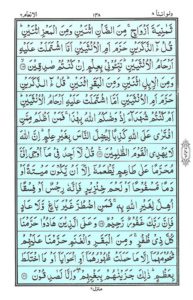 الانعام ٦
١٣٨
ولو اننا ٨
ثَمٰنِيَةَ اَزْوَاجٍ ۚ مِنَ الضَّاْنِ اثْنَيْنِ وَمِنَ الْمَعْزِ اثْنَيْنِ ؕ
قُلْ ءٰٓالذَّكَرَيْنِ حَرَّمَ اَمِ الْاُنْثَيَيْنِ اَمَّا اشْتَمَلَتْ عَلَيْهِ
اَرْحَامُ الْاُنْثَيَيْنِ ؕ نَبِّـُٔوْنِيْ بِعِلْمٍ اِنْ كُنْتُمْ صٰدِقِيْنَ ۙ
وَمِنَ الْاِبِلِ اثْنَيْنِ وَمِنَ الْبَقَرِ اثْنَيْنِ ؕ قُلْ ءٰٓالذَّكَرَيْنِ
حَرَّمَ اَمِ الْاُنْثَيَيْنِ اَمَّا اشْتَمَلَتْ عَلَيْهِ اَرْحَامُ الْاُنْثَيَيْنِ ؕ
اَمْ كُنْتُمْ شُهَدَآءَ اِذْ وَصّٰىكُمُ اللّٰهُ بِهٰذَا ۚ فَمَنْ اَظْلَمُ مِمَّنِ
افْتَرٰى عَلَى اللّٰهِ كَذِبًا لِّيُضِلَّ النَّاسَ بِغَيْرِ عِلْمٍ ؕ اِنَّ اللّٰهَ
لَا يَهْدِى الْقَوْمَ الظّٰلِمِيْنَ ۧ قُلْ لَّآ اَجِدُ فِيْ مَآ اُوْحِيَ اِلَيَّ
مُحَرَّمًا عَلٰى طَاعِمٍ يَّطْعَمُهٗٓ اِلَّآ اَنْ يَّكُوْنَ مَيْتَةً اَوْ
دَمًا مَّسْفُوْحًا اَوْ لَحْمَ خِنْزِيْرٍ فَاِنَّهٗ رِجْسٌ اَوْ فِسْقًا
اُهِلَّ لِغَيْرِ اللّٰهِ بِهٖ ۚ فَمَنِ اضْطُرَّ غَيْرَ بَاغٍ وَّلَا عَادٍ
فَاِنَّ رَبَّكَ غَفُوْرٌ رَّحِيْمٌ وَعَلَى الَّذِيْنَ هَادُوْا حَرَّمْنَا
كُلَّ ذِيْ ظُفُرٍ ۚ وَمِنَ الْبَقَرِ وَالْغَنَمِ حَرَّمْنَا عَلَيْهِمْ
شُحُوْمَهُمَآ اِلَّا مَا حَمَلَتْ ظُهُوْرُهُمَآ اَوِ الْحَوَايَآ اَوْ مَا اخْتَلَطَ
بِعَظْمٍ ؕ ذٰلِكَ جَزَيْنٰهُمْ بِبَغْيِهِمْ ۖ وَاِنَّا لَصٰدِقُوْنَ
منزل ٢